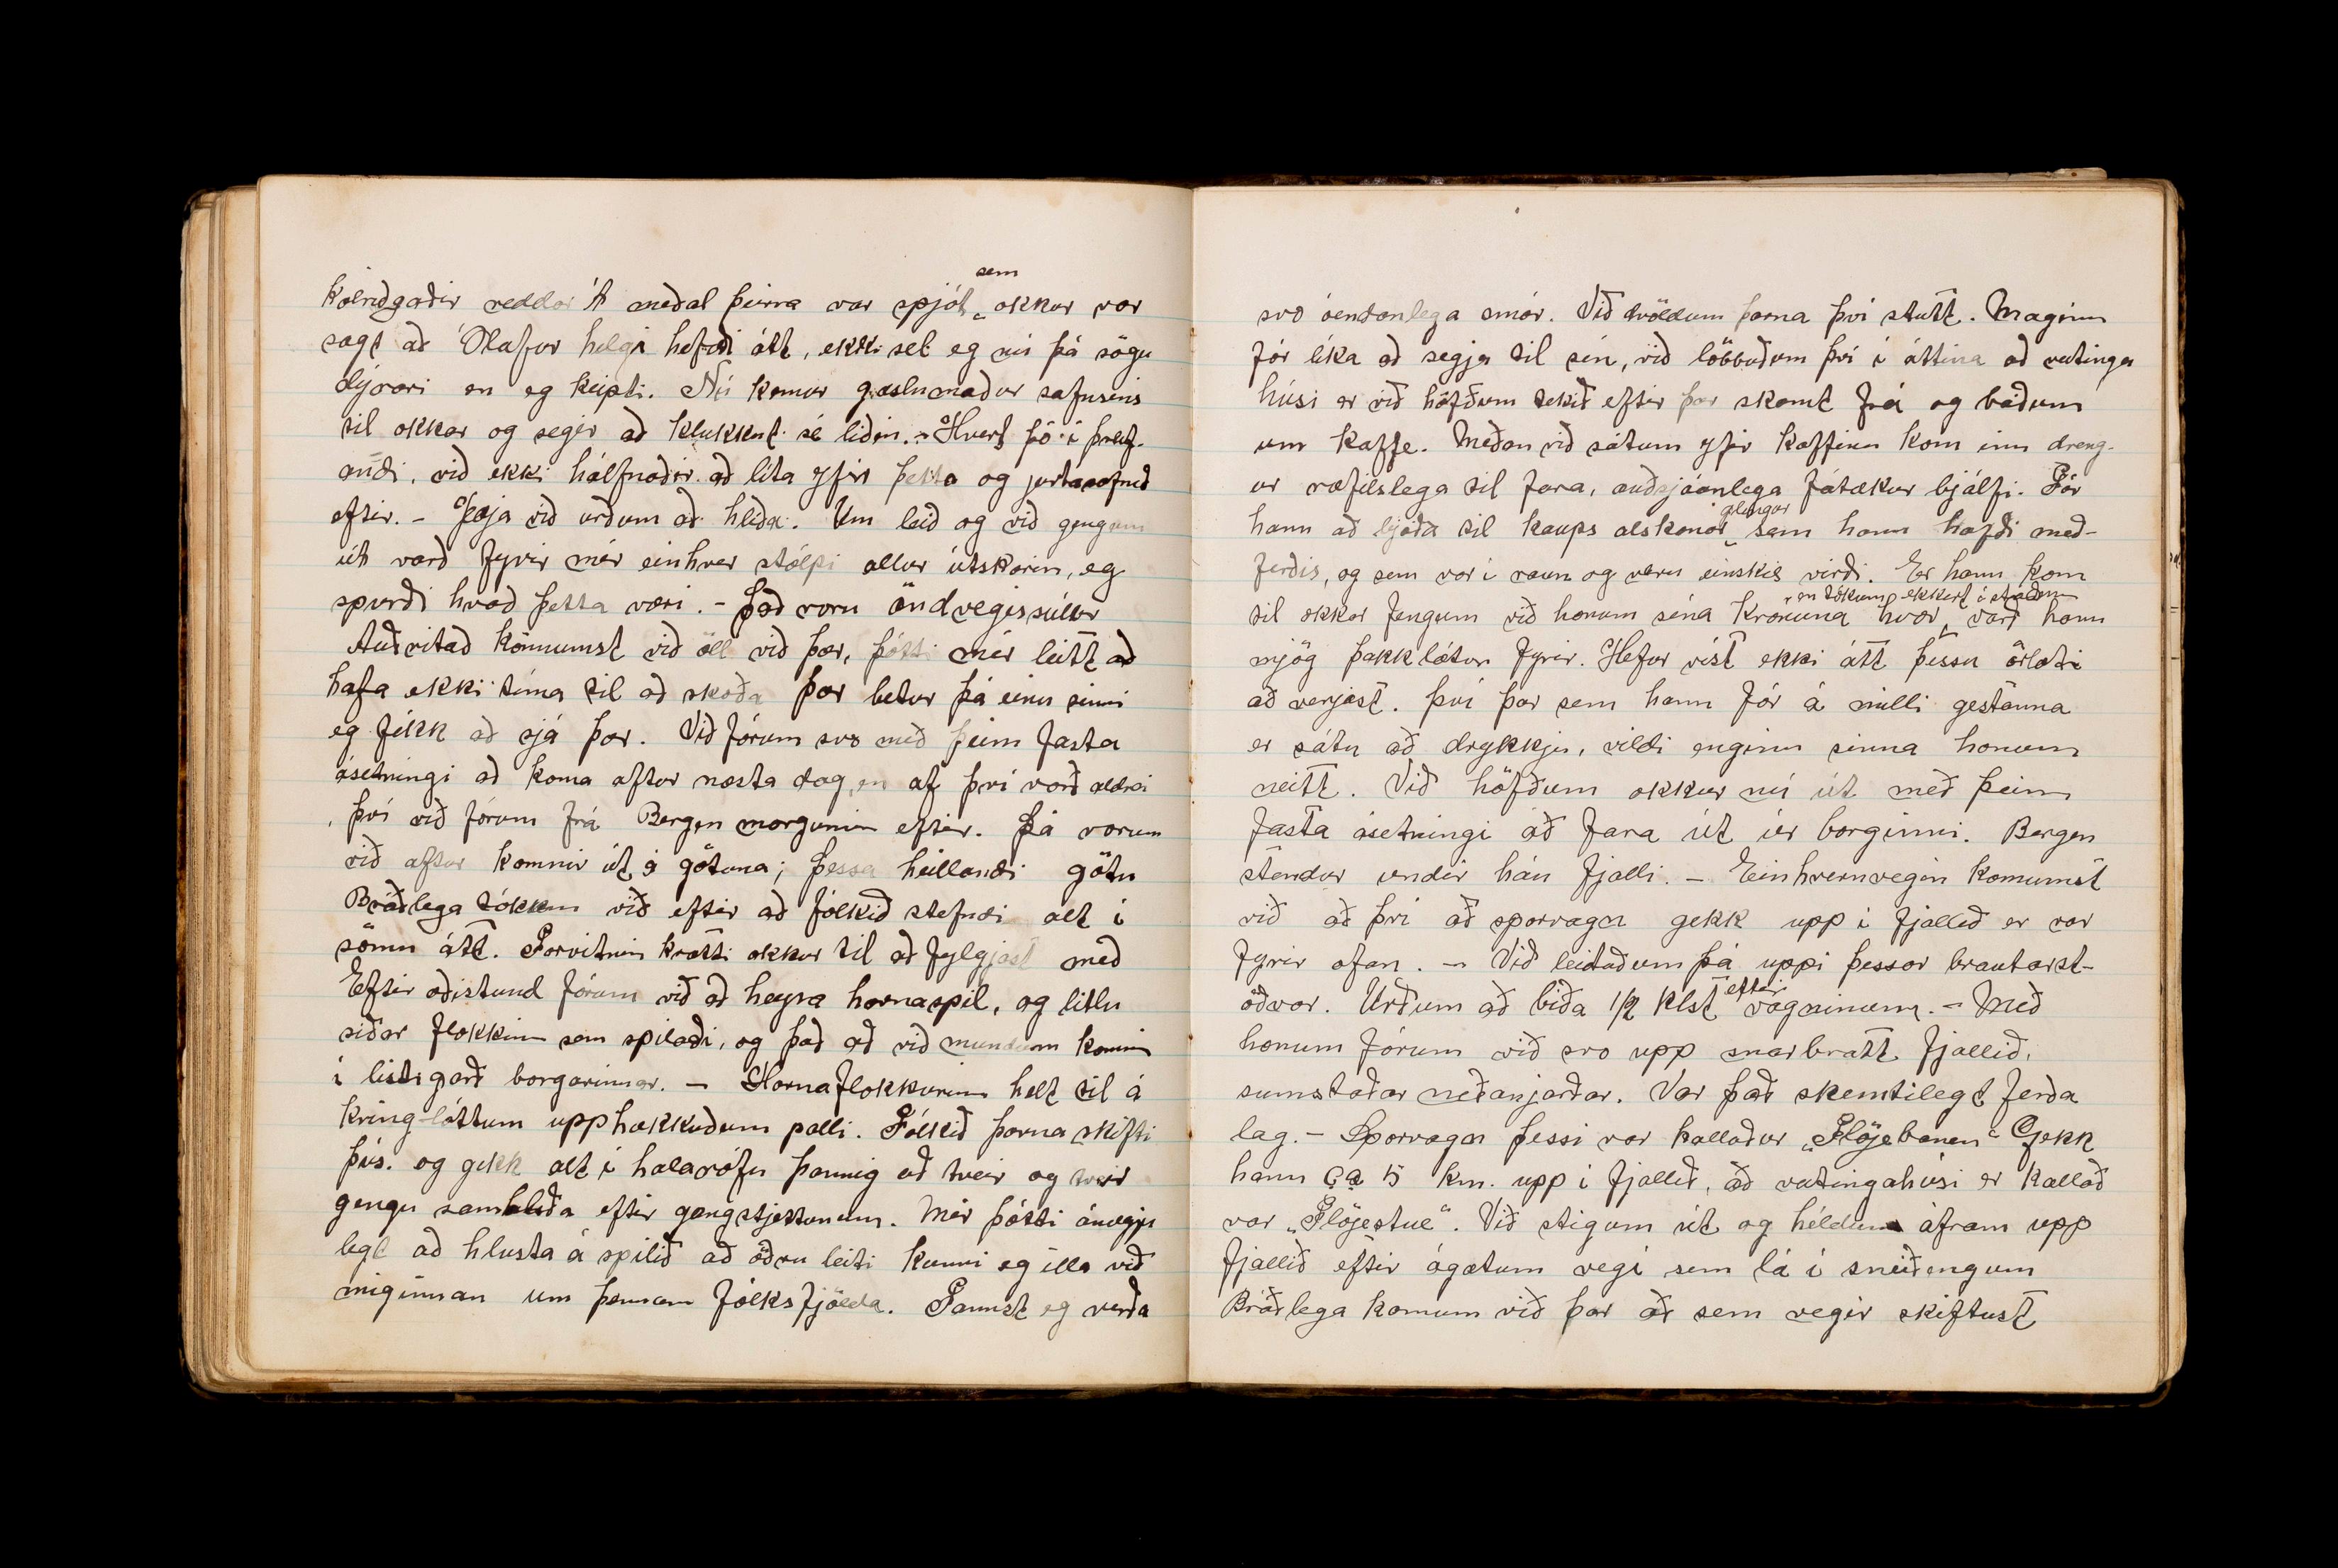 reddar Á meðal þeirra var spjót sem okkur var
sagt að Ólafur helgi hefði átt, ekki sel eg nú þá sögu
dýrari en eg keipti. Nú kemur gæslumaður safnsins
til okkar og segir að klukkut. sé liðin. - Hvert þó í þreif-
andi, við ekki hálfnaðir að líta yfir þetta og jurtasafnið
eftir. - Jæja við urðum að hlíða. Um leið og við gengum
út varð fyrir mér einhver stólpi allur útskorin, eg
spurði hvað þetta væri. - Það voru öndvegissúlur
Auðvitað könnumst við öll við þær, þótti mér leitt að
hafa ekki tíma til að skoða þær betur þá einu sinni
eg fékk að sjá þær. Við fórum svo með þeim fasta
ásetningi að koma aftur næsta dag, en af því varð aldrei
því við fórum frá Bergen morgunin eftir. Þá vorum
við aftur komnir út á götuna; þessa heillandi götu
Bráðlega tókum við eftir að fólkið stefndi alt í
sömu átt. Forvitnin hvatti okkur til að fylgjast með
Eftir aðistund fórum við að heyra hornaspil, og litlu
síðar flokkinn sem spilaði, og það að við mundum komnir
í listigarð borgarinnar. - Hornaflokkurinn helt til á
kring-lóttum upphækkuðum palli. Fólkið þarna skifti
þús. og gekk alt í halarófu þannig að tveir og tveir
gengu samhliða eftir gangstjettunum. Mér þótti ánægju
legt að hlusta á spilið að öðru leiti kunni eg illa við
miginnan um þennan fólksfjölda. Fannst eg verða
svo óendanlega smár. Við dvöldum þarna því stutt. Maginn
fór líka að segja til sín, við löbbuðum því í áttina að veitinga
húsi er við höfðum tekið eftir þar skamt frá og báðum
um kaffe. Meðan við sátum yfir kaffinu kom inn dreng-
ur ræfilslega til fara, auðsjáanlega fátækur bjálfi. Fór
hann að bjóða til kaups alskonar glingur sem hann hafði með-
ferðis, og sem var í raun og veru einskis virði. Er hann kom
til okkar fengum við honum sína krónuna hvor, en tókum ekkert í staðinn varð hann
mjög þakklátur fyrir. Hefur víst ekki átt þessu örlæti
að venjast. því þar sem hann fór á milli gestanna
er sátu að drykkju, vildi enginn sinna honum
neitt. Við höfðum okkur nú út með þeim
fasta ásetningi að fara út úr borginni. Bergen
stendur undir háu fjalli. - Einhvernvegin komumst
við að því að sporvagn gekk upp í fjallið er var
fyrir ofan. - Við leituðum þá uppi þessar brautarst-
öðvar. Urðum að bíða 1/2 klst eftir vagninum. - Með
honum fórum við svo upp snarbratt fjallið,
sumstaðar neðanjarðar. Var það skemtilegt ferða
lag. - Sporvagn þessi var kallaður „Flöjebanen“ Gekk
hann ca 5 km. upp í fjallið, að veitingahúsi er kallað
var „Flöjestue“. Við stigum út og héldum áfram upp
fjallið eftir ágætum vegi sem lá í sneiðengum
Bráðlega komum við þar að sem vegir skiftust